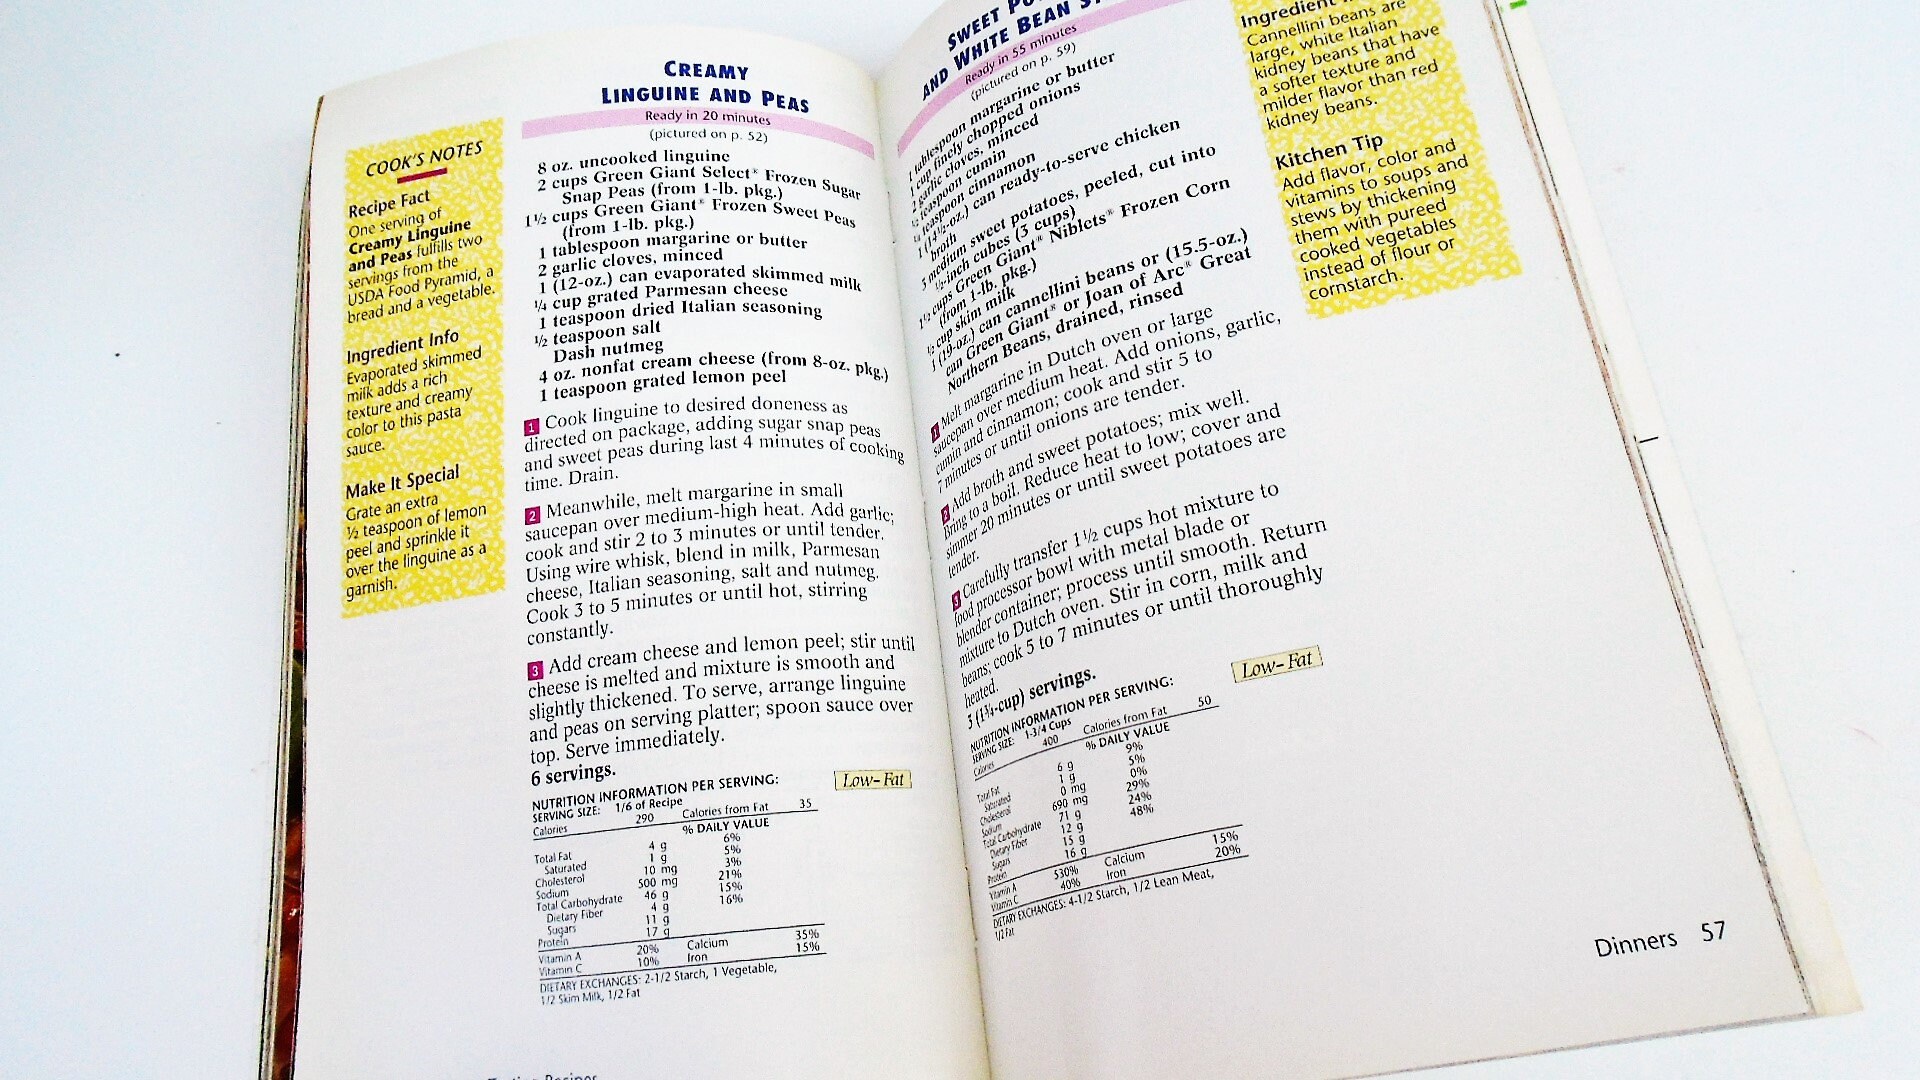 CREAMY
LINGUINE AND PEAS
Ready in 20 minutes
(pictured on p. 52)
COOK'S NOTES
Recipe Fact
One serving of
Creamy Linguine
and Peas fulfills two
servings from the
USDA Food Pyramid, a
bread and a vegetable.
Ingredient Info
Evaporated skimmed
milk adds a rich
texture and creamy
color to this pasta
sauce.
Make It Special
Grate an extra
½ teaspoon of lemon
peel and sprinkle it
over the linguine as a
garnish.
8 oz. uncooked linguine
2 cups Green Giant Select® Frozen Sugar
Snap Peas (from 1-lb. pkg.)
1½ cups Green Giant® Frozen Sweet Peas
(from 1-lb. pkg.)
1 tablespoon margarine or butter
2 garlic cloves, minced
1 (12-oz.) can evaporated skimmed milk
¼ cup grated Parmesan cheese
1 teaspoon dried Italian seasoning
½ teaspoon salt
Dash nutmeg
4 oz. nonfat cream cheese (from 8-oz. pkg.)
1 teaspoon grated lemon peel
1 Cook linguine to desired doneness as
directed on package, adding sugar snap peas
and sweet peas during last 4 minutes of cooking
time. Drain.
2 Meanwhile, melt margarine in small
saucepan over medium-high heat. Add garlic;
cook and stir 2 to 3 minutes or until tender.
Using wire whisk, blend in milk, Parmesan
cheese, Italian seasoning, salt and nutmeg.
Cook 3 to 5 minutes or until hot, stirring
constantly.
3 Add cream cheese and lemon peel; stir until
cheese is melted and mixture is smooth and
slightly thickened. To serve, arrange linguine
and peas on serving platter; spoon sauce over
top. Serve immediately.
6 servings.
Low-Fat
NUTRITION INFORMATION PER SERVING:
SERVING SIZE: 1/6 of Recipe
Calories 290 Calories from Fat 35
% DAILY VALUE
Total Fat 4 g 6%
Saturated 1 g 5%
Cholesterol 10 mg 3%
Sodium 500 mg 21%
Total Carbohydrate 46 g 15%
Dietary Fiber 4 g 16%
Sugars 11 g
Protein 17 g
Vitamin A 20% Calcium 35%
Vitamin C 10% Iron 15%
DIETARY EXCHANGES: 2-1/2 Starch, 1 Vegetable,
1/2 Skim Milk, 1/2 Fat
SWEET
AND WHITE BEAN
Ready in 55 minutes
(pictured on p. 59)
1 tablespoon margarine or butter
1 cup finely chopped onions
2 garlic cloves, minced
½ teaspoon cumin
¼ teaspoon cinnamon
1 (14½-oz.) can ready-to-serve chicken
broth
3 medium sweet potatoes, peeled, cut into
½-inch cubes (3 cups)
1½ cups Green Giant® Niblets® Frozen Corn
(from 1-lb. pkg.)
½ cup skim milk
1 (19-oz.) can cannellini beans or (15.5-oz.)
can Green Giant® or Joan of Arc® Great
Northern Beans, drained, rinsed
1 Melt margarine in Dutch oven or large
saucepan over medium heat. Add onions, garlic,
cumin and cinnamon; cook and stir 5 to
7 minutes or until onions are tender.
2 Add broth and sweet potatoes; mix well.
Bring to a boil. Reduce heat to low; cover and
simmer 20 minutes or until sweet potatoes are
tender.
3 Carefully transfer 1½ cups hot mixture to
food processor bowl with metal blade or
blender container; process until smooth. Return
mixture to Dutch oven. Stir in corn, milk and
beans; cook 5 to 7 minutes or until thoroughly
heated.
3 (1¾-cup) servings.
Low-Fat
NUTRITION INFORMATION PER SERVING:
SERVING SIZE: 1-3/4 Cups
Calories 400 Calories from Fat 50
% DAILY VALUE
Total Fat 6 g 9%
Saturated 1 g 5%
Cholesterol 0 mg 0%
Sodium 690 mg 29%
Total Carbohydrate 71 g 24%
Dietary Fiber 12 g 48%
Sugars 15 g
Protein 16 g
Vitamin A 530% Calcium 15%
Vitamin C 40% Iron 20%
DIETARY EXCHANGES: 4-1/2 Starch, 1/2 Lean Meat,
1/2 Fat
Ingredient
Cannellini beans are
large, white Italian
kidney beans that have
a softer texture and
milder flavor than red
kidney beans.
Kitchen Tip
Add flavor, color and
vitamins to soups and
stews by thickening
them with pureed
cooked vegetables
instead of flour or
cornstarch.
Dinners 57